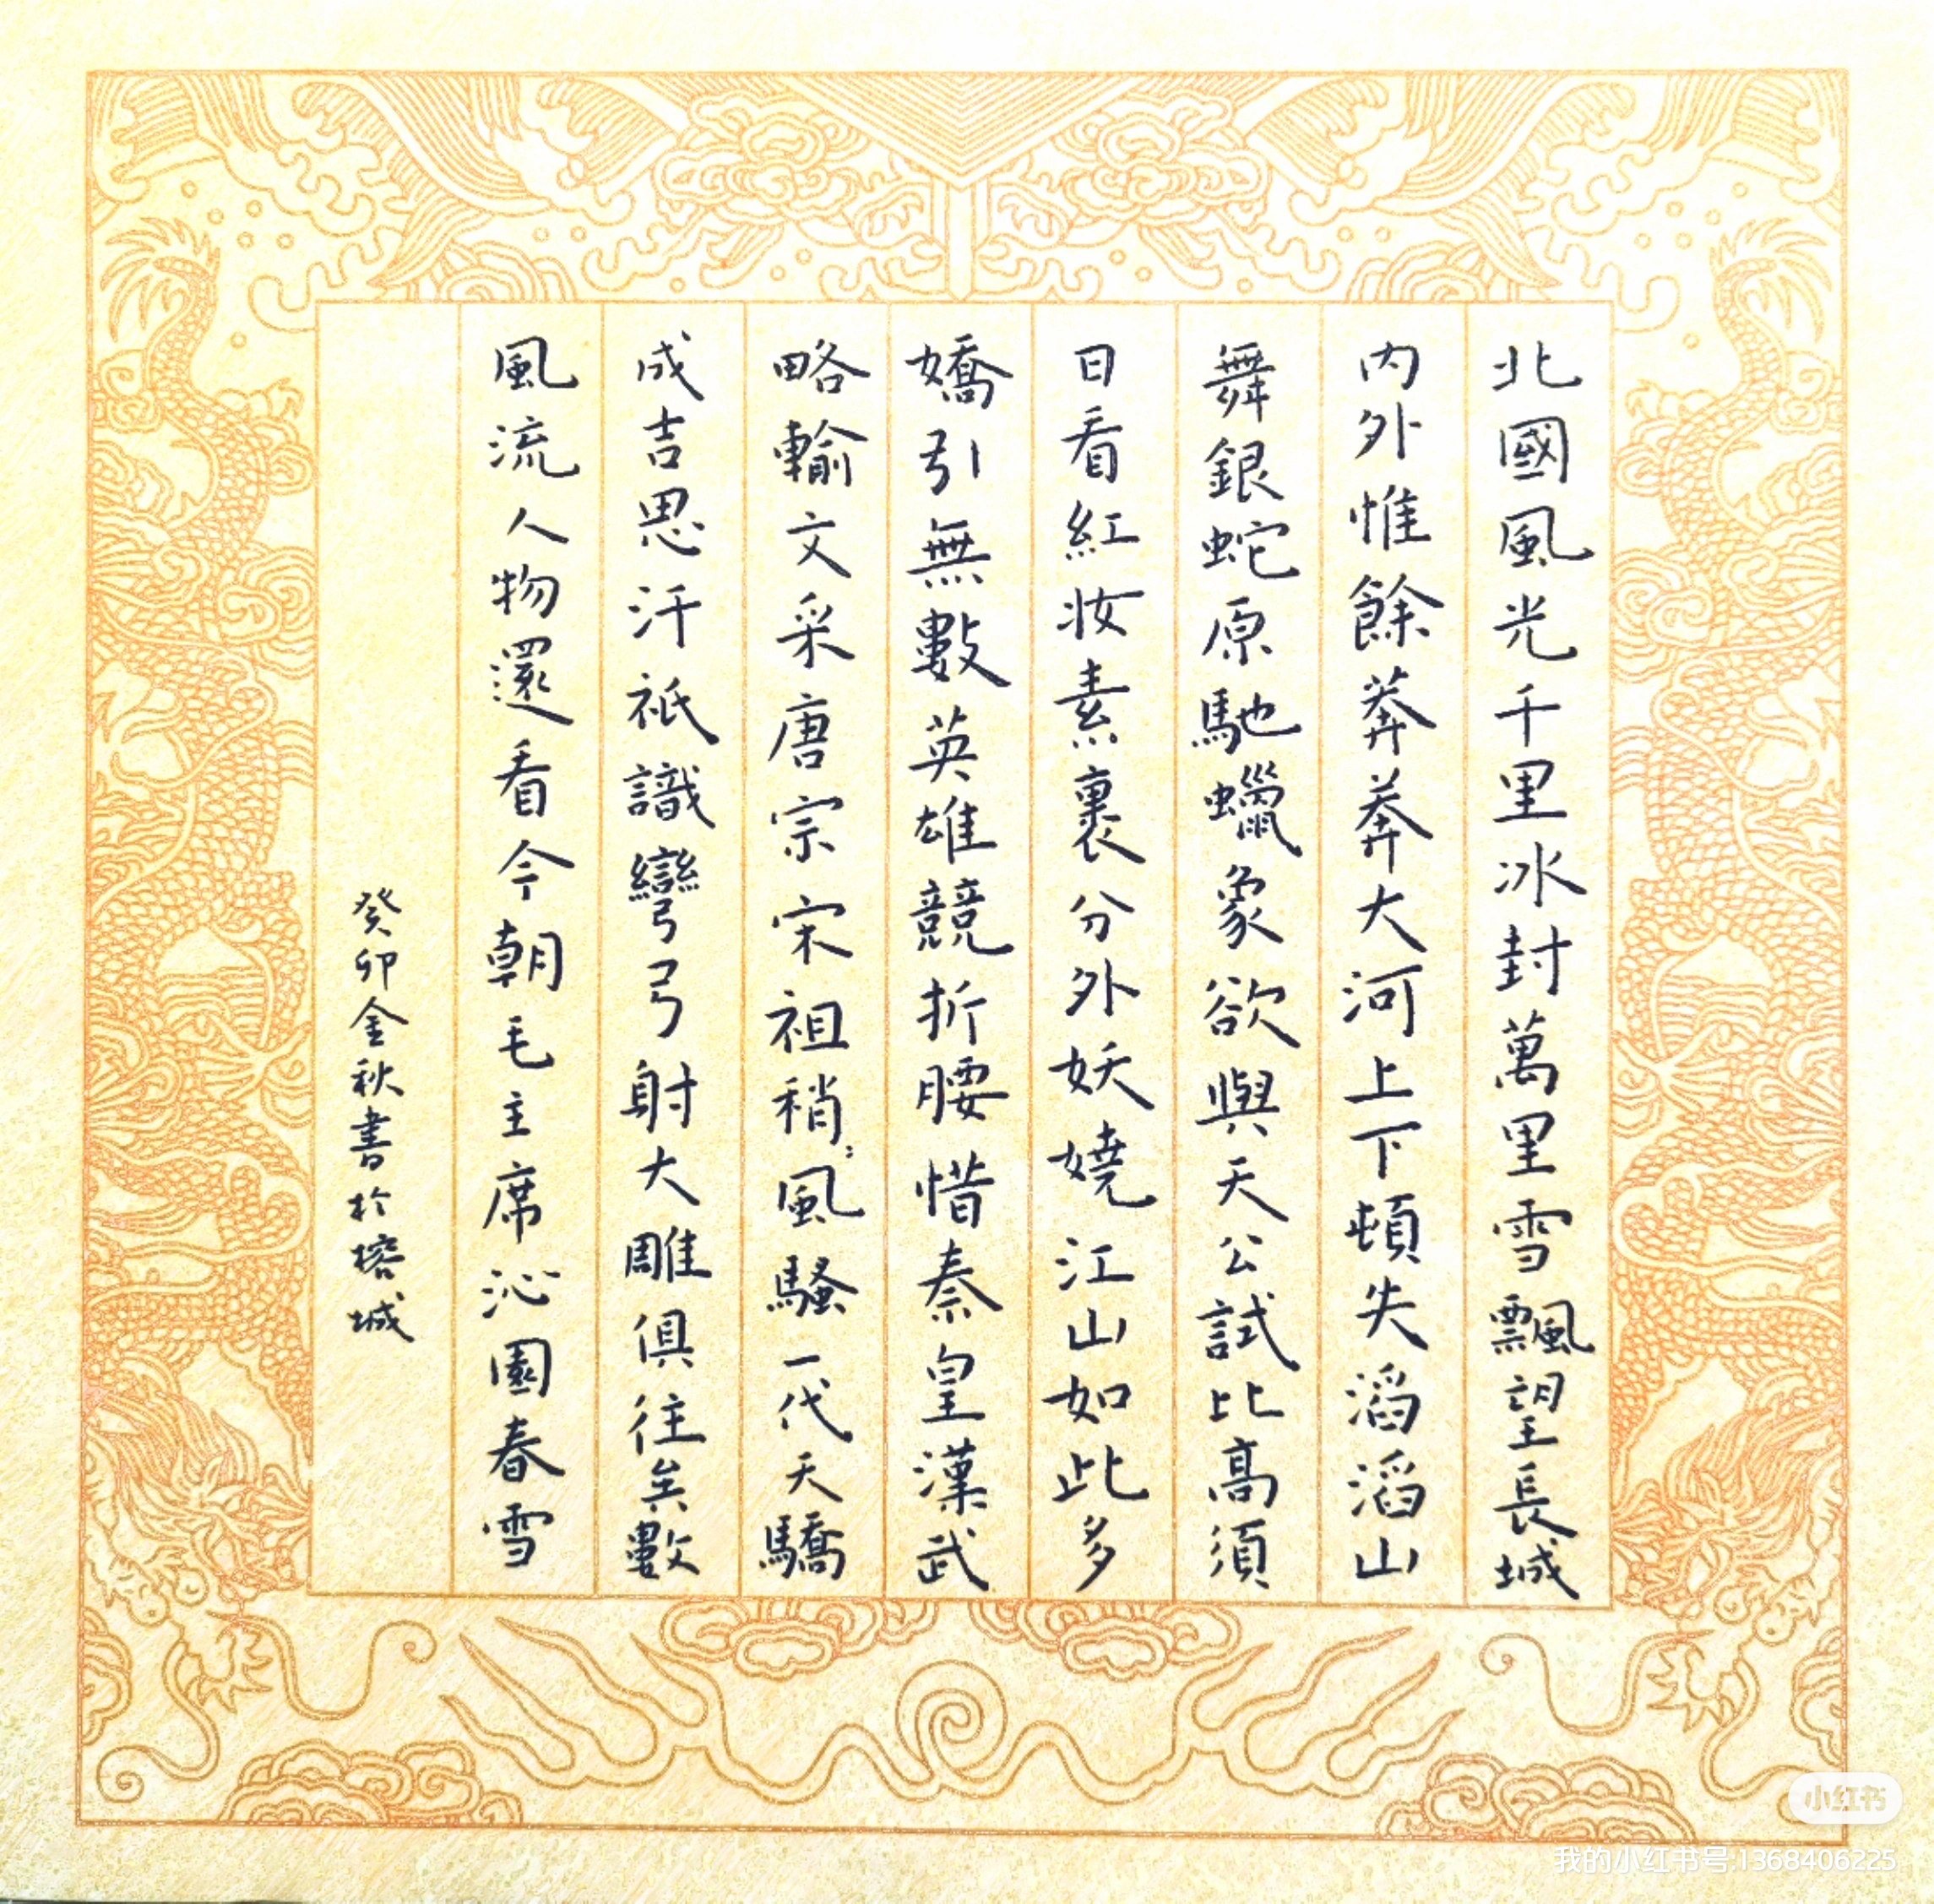 北國風光千里冰封萬里雪飄望長城
内外惟餘莽莽大河上下頓失滔滔山
舞銀蛇原馳蠟象欲與天公試比高須
日看紅妆素裹分外妖嬈江山如此多
嬌引無數英雄競折腰惜秦皇漢武
略輸文采唐宗宋祖稍風騷一代天驕
成吉思汗祇識彎弓射大雕俱往矣數
風流人物還看今朝毛主席沁園春雪
癸卯金秋書於榕城
小红书
我的小红书号:1368406225